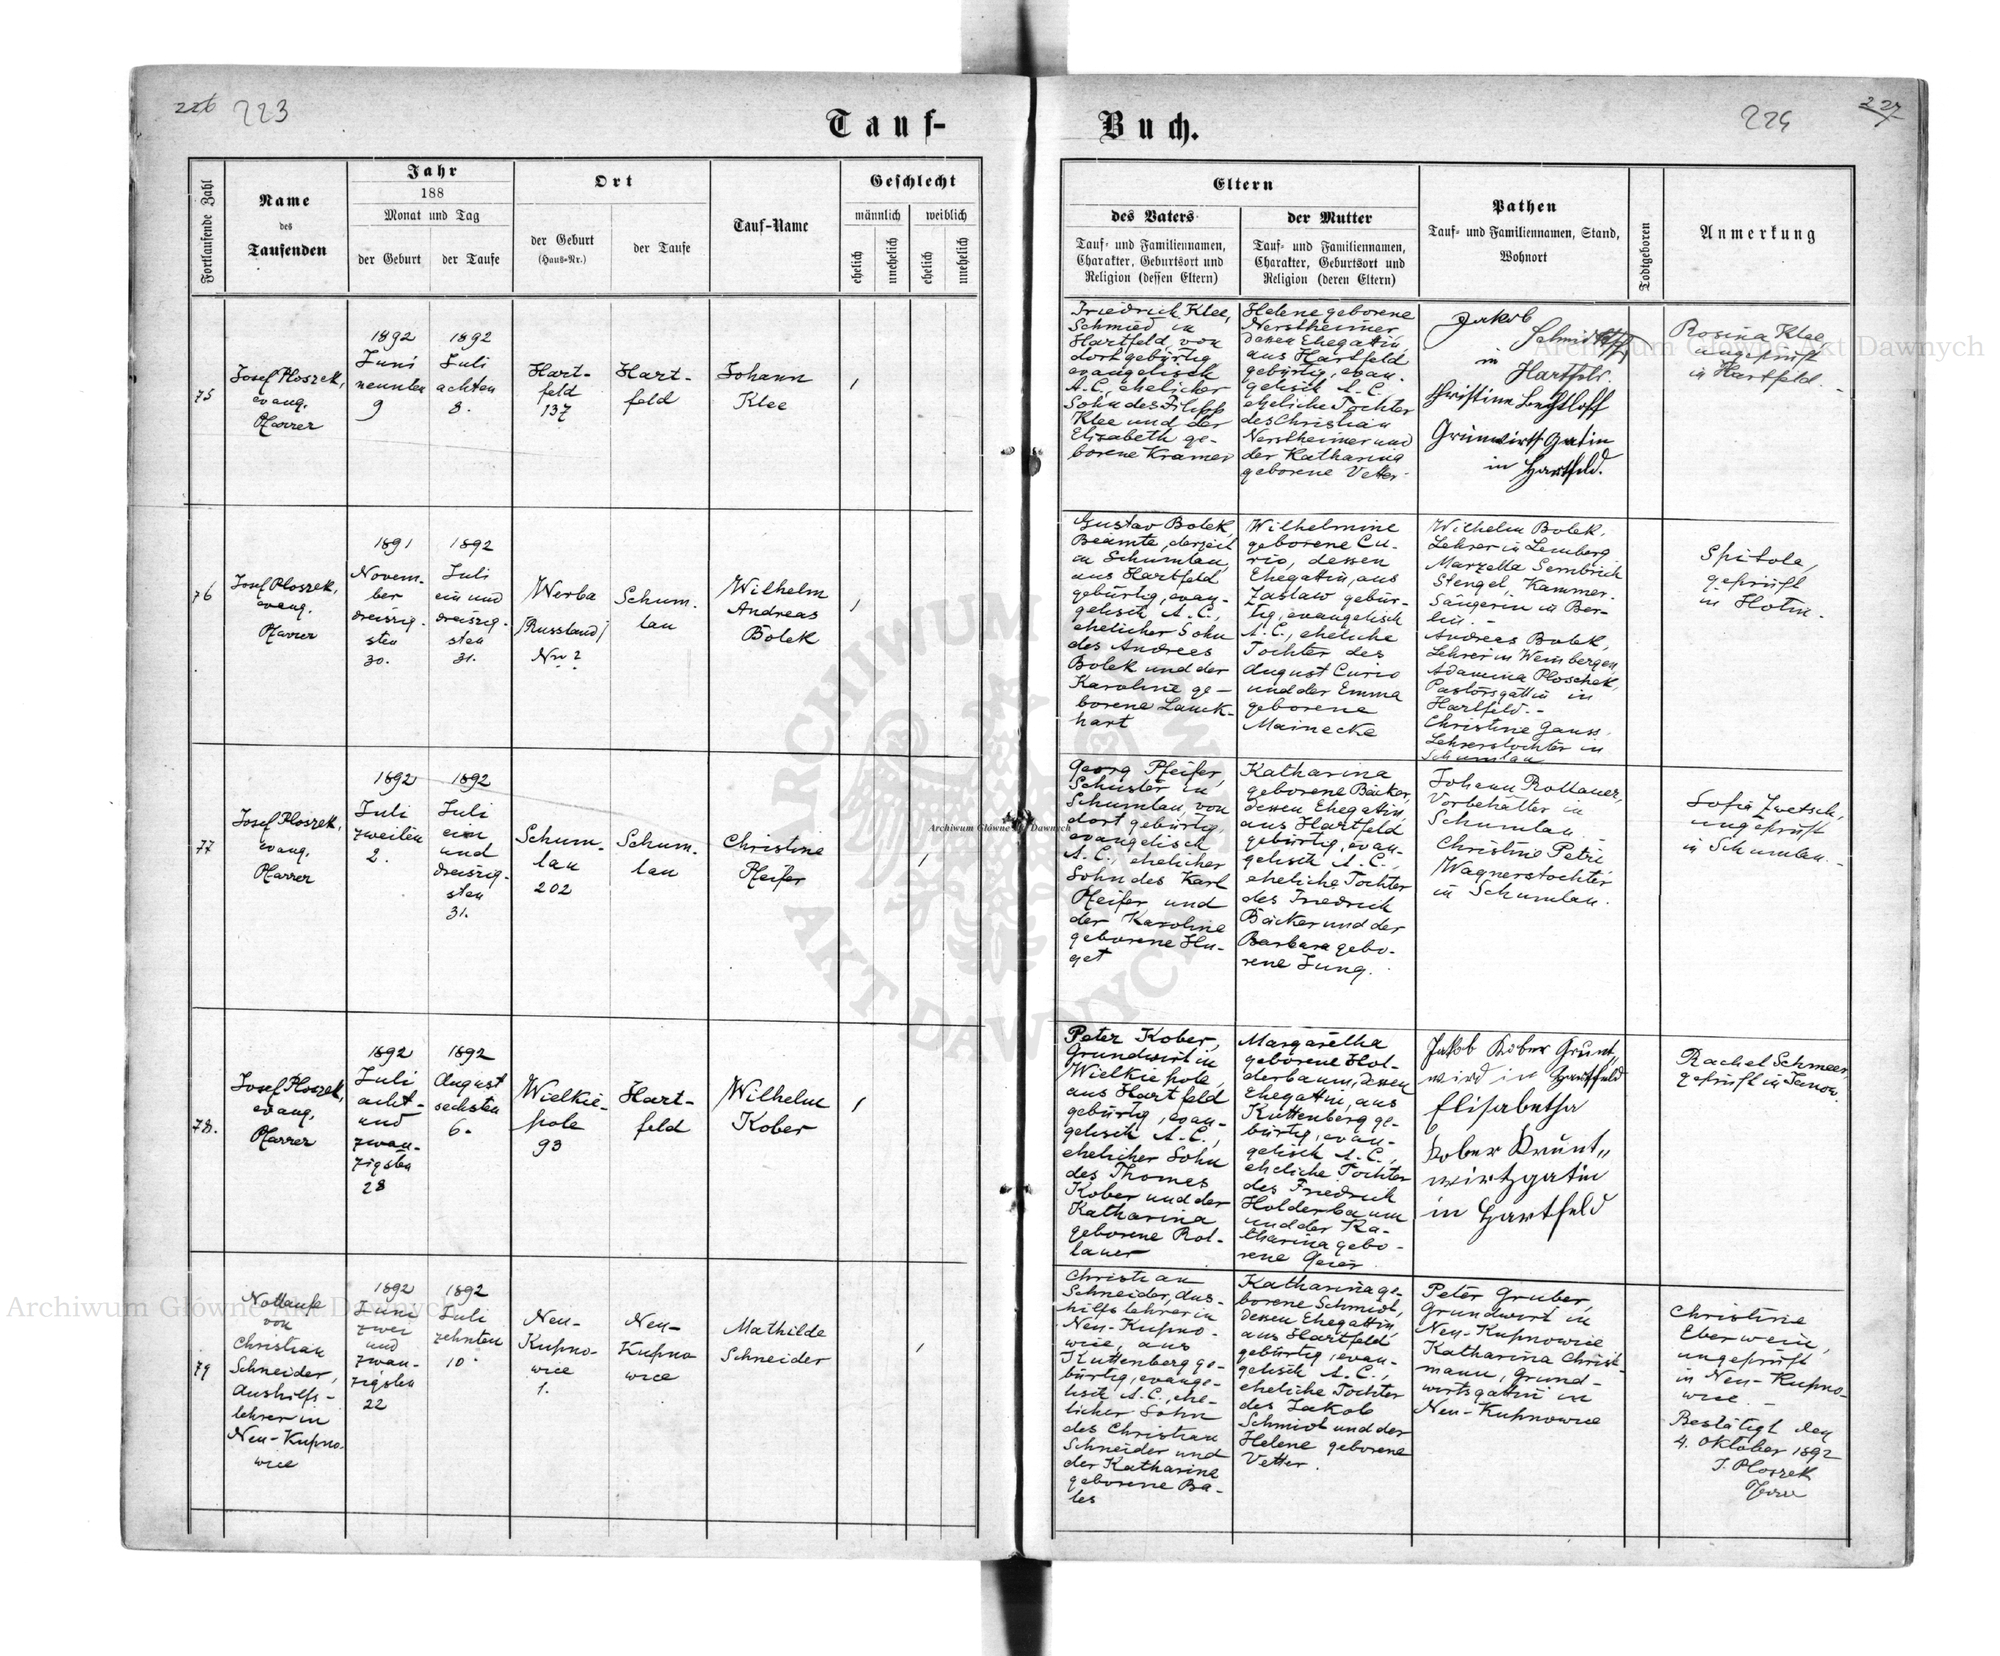 226 223
Tauf-
Buch.
224 227
Fortlaufende Zahl
Name
des
Taufenden
Jahr
188
Monat und Tag
der Geburt
der Taufe
Ort
der Geburt
(Haus-Nr.)
der Taufe
Tauf-Name
Geschlecht
männlich
weiblich
ehelich
unehelich
ehelich
unehelich
Eltern
des Vaters
Tauf- und Familiennamen,
Charakter, Geburtsort und
Religion (dessen Eltern)
der Mutter
Tauf- und Familiennamen,
Charakter, Geburtsort und
Religion (deren Eltern)
Pathen
Tauf- und Familiennamen, Stand,
Wohnort
Todtgeboren
Anmerkung
75
Josef Ploszek,
evang.
Pfarrer
1892
Juni
neunten
9
1892
Juli
achten
8.
Hart-
feld
137
Hart-
feld
Johann
Klee
Friedrich Klee,
Schmied in
Hartfeld, von
dort gebürtig,
evangelisch
A.C., ehelicher
Sohn des Filipp
Klee und der
Elisabeth ge-
borene Kramer
Helene geborene
Nerstheimer,
dessen Ehegattin,
aus Hartfeld
gebürtig, evan-
gelisch A.C.
eheliche Tochter
des Christian
Nerstheimer und
der Katharina
geborene Vetter.
Jakob
in
Hartfeld.
Christine Bechtloff
Grunwirts Gatin
in Hartfeld.
Rosina Klee,
ungeprüft
in Hartfeld.
76
Josef Ploszek,
evang.
Pfarrer
1891
Novem-
ber
dreiszig-
sten
30.
1892
Juli
ein und
dreiszig-
sten
31.
Werba
/Russland/
Nr ?
Schum-
lau
Wilhelm
Andreas
Bolek
Gustav Bolek,
Beamte, derzeit
in Schumlau,
aus Hartfeld
gebürtig, evan-
gelisch A.C.,
ehelicher Sohn
des Andreas
Bolek und der
Karoline ge-
borene Lauck-
hart
Wilhelmine
geborene Cu-
rio, dessen
Ehegattin, aus
Zaslaw gebür-
tig, evangelisch
A.C., eheliche
Tochter des
August Curio
und der Emma
geborene
Mainecke
Wilhelm Bolek,
Lehrer in Lemberg.
Marzella Sembrich
Stengel, Kammer-
Sängerin in Ber-
lin. -
Andreas Bolek,
Lehrer in Weinbergen,
Adamina Ploschek,
Pastorsgattin in
Hartfeld. -
Christine Gauss,
Lehrerstochter in
Schumlau
Spitola,
geprüft
in Hotin.
77
Josef Ploszek,
evang.
Pfarrer
1892
Juli
zweiten
2.
1892
Juli
ein
und
dreiszig-
sten
31.
Schum-
lau
202
Schum-
lau
Christine
Pfeifer
Georg Pfeifer,
Schuster in
Schumlau, von
dort gebürtig,
evangelisch
A.C., ehelicher
Sohn des Karl
Pfeifer und
der Karoline
geborene Hu-
get
Katharina
geborene Bäcker,
dessen Ehegattin,
aus Hartfeld
gebürtig, evan-
gelisch A.C.,
eheliche Tochter
des Friedrich
Bäcker und der
Barbara gebo-
rene Jung.
Johann Rollauer,
Vorbehälter in
Schumlau. -
Christine Petri
Wagnerstochter
in Schumlau.
Sofia Zwetsch,
ungeprüft
in Schumlau. -
78.
Josef Ploszek,
evang.
Pfarrer
1892
Juli
acht-
und
zwan-
zigsten
28
1892
August
sechsten
6.
Wielkie-
pole
93
Hart-
feld
Wilhelm
Kober
Peter Kober,
Grundwirt in
Wielkiepole,
aus Hartfeld
gebürtig, evan-
gelisch A.C.,
ehelicher Sohn
des Thomas
Kober und der
Katharina
geborene Rol-
lauer
Margaretha
geborene Hol-
derbaum, dessen
Ehegattin, aus
Kuttenberg ge-
bürtig, evan-
gelisch A.C.,
eheliche Tochter
des Friedrich
Holderbaum
und der Ka-
tharina gebo-
rene Geier
Jakob Kober Grunt„
wird in Hartfeld
Elisabetha
Kober Kruunt„
wirtzgatin
in Hartfeld
Rachel Schmeer,
geprüft in Janow.
79
Nottaufe
von
Christian
Schneider,
Aushilfs-
lehrer in
Neu-Kupno-
wice
1892
Juni
zwei
und
zwan-
zigsten
22
1892
Juli
zehnten
10.
Neu-
Kupno-
wice
1.
Neu-
Kupno
wice
Mathilde
Schneider
Christian
Schneider, Aus-
hilfslehrer in
Neu-Kupno-
wice, aus
Kuttenberg ge-
bürtig, evange-
lisch A.C., ehe-
licher Sohn
des Christian
Schneider und
der Katharina
geborene Ba-
les
Katharina ge-
borene Schmidt,
dessen Ehegattin,
aus Hartfeld
gebürtig, evan-
gelisch A.C.,
eheliche Tochter
des Jakob
Schmidt und der
Helene geborene
Vetter.
Peter Gruber,
Grundwirt in
Neu-Kupnowice
Katharina Christ-
mann, Grund-
wirtsgattin in
Neu-Kupnowice
Christine
Eberwein,
ungeprüft
in Neu-Kupno-
wice. -
Bestätigt den
4. Oktober 1892
J. Ploszek
Archiwum Główne Akt Dawnych
Archiwum Główne Akt Dawnych
Archiwum Główne Akt Dawnych
ARCHIWUM GŁÓWNE AKT DAWNYCH